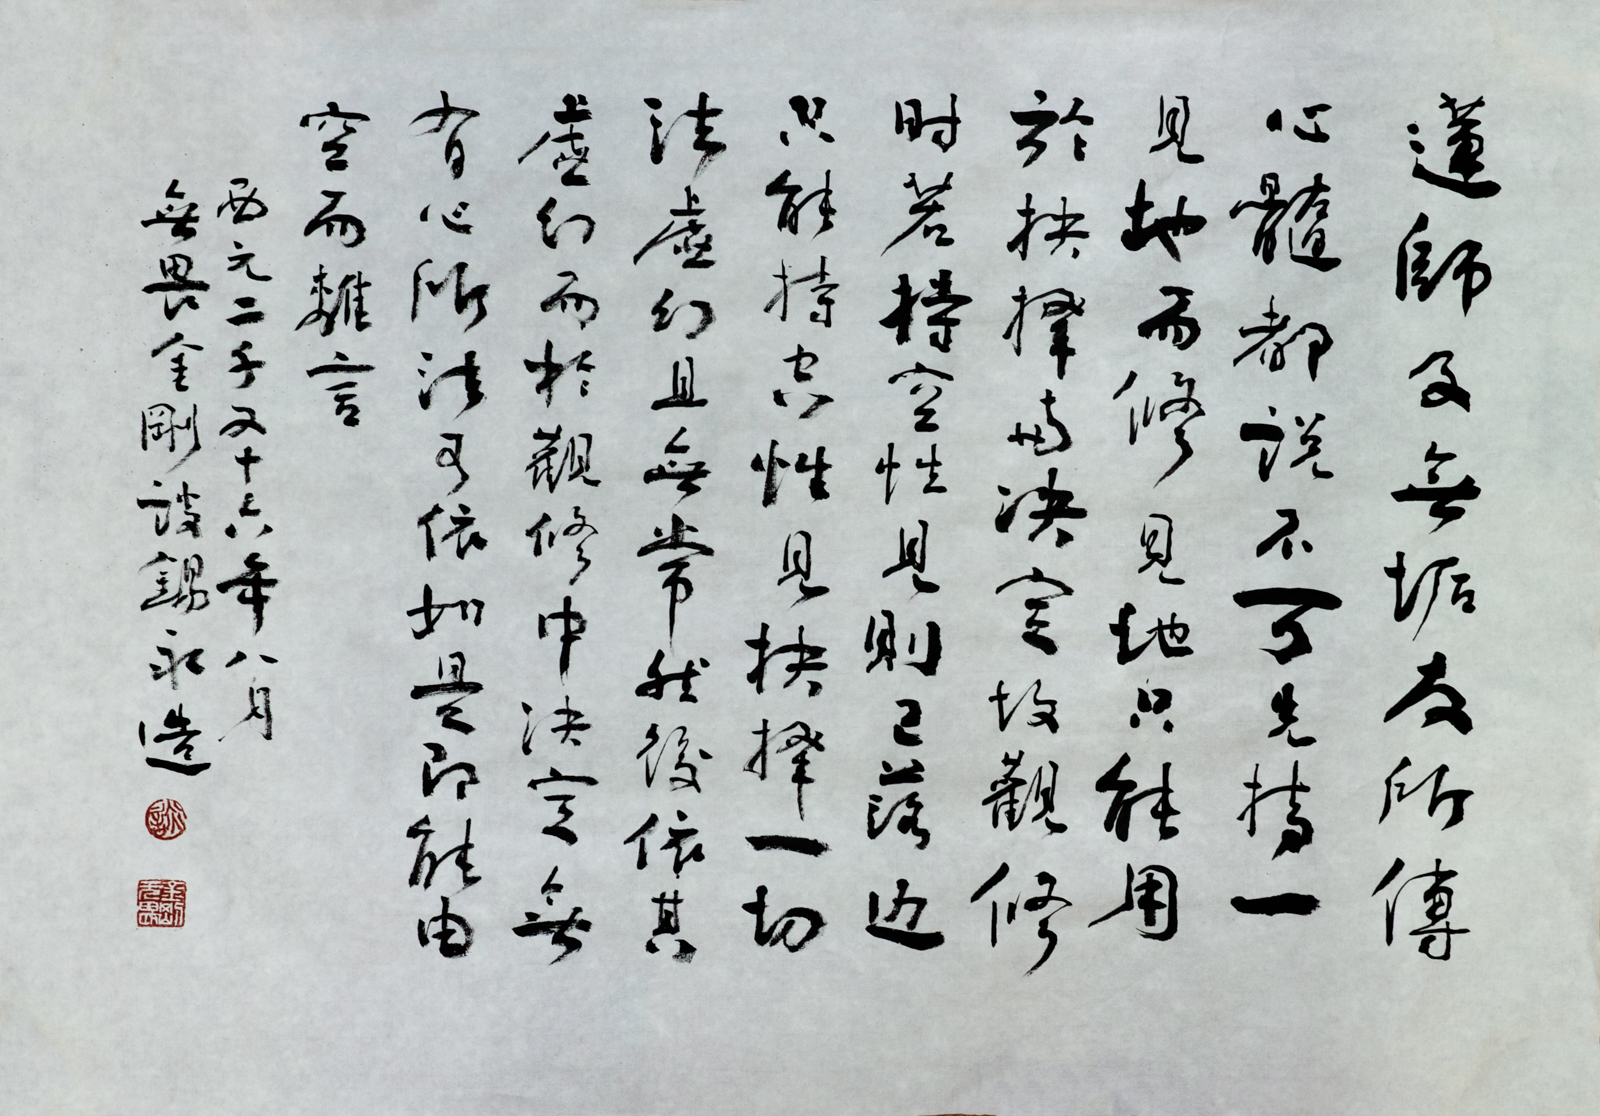 蓮師及無垢友所傳
心髓都說不可先持一
見地而修見地只能用
於抉擇與決定故觀修
時若持空性見則已落边
只能持空性見抉擇一切
法虛幻且無常然後依其
虛幻而於觀修中決定無
有心所法可依如是即能由
空而離言
西元二千又十六年八月
無畏金剛談錫永造
談
金剛无畏